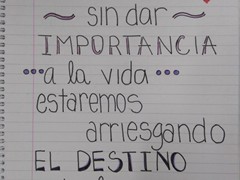 ~ sin dar ~
IMPORTANCIA
a la vida
estaremos
arriesgando
EL DESTINO